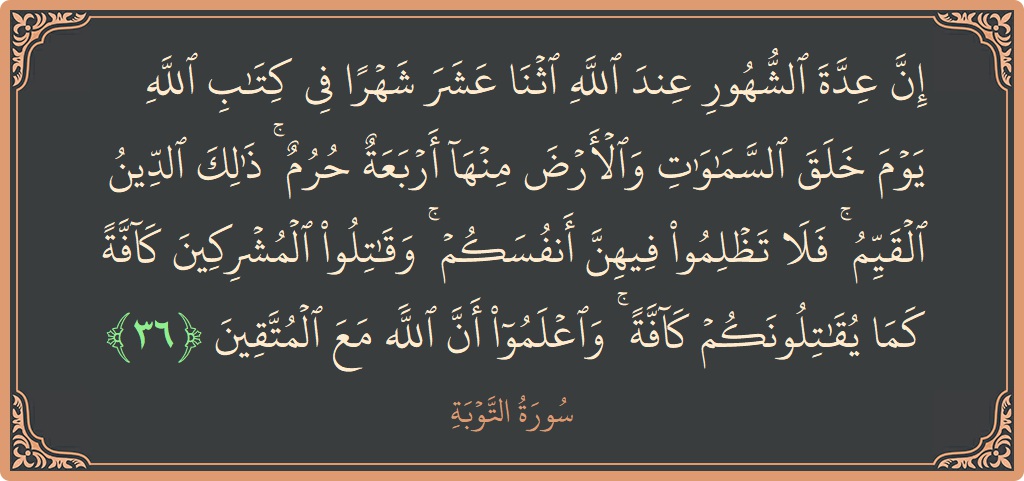 إِنَّ عِدَّةَ ٱلشُّهُورِ عِندَ ٱللَّهِ ٱثْنَا عَشَرَ شَهْرًا فِى كِتَـٰبِ ٱللَّهِ
يَوْمَ خَلَقَ ٱلسَّمَـٰوَٰتِ وَٱلْأَرْضَ مِنْهَآ أَرْبَعَةٌ حُرُمٌ ۚ ذَٰلِكَ ٱلدِّينُ
ٱلْقَيِّمُ ۚ فَلَا تَظْلِمُوا۟ فِيهِنَّ أَنفُسَكُمْ ۚ وَقَـٰتِلُوا۟ ٱلْمُشْرِكِينَ كَآفَّةً
كَمَا يُقَـٰتِلُونَكُمْ كَآفَّةً ۚ وَٱعْلَمُوٓا۟ أَنَّ ٱللَّهَ مَعَ ٱلْمُتَّقِينَ ﴿٣٦﴾
سُورَةُ التَّوْبَةِ